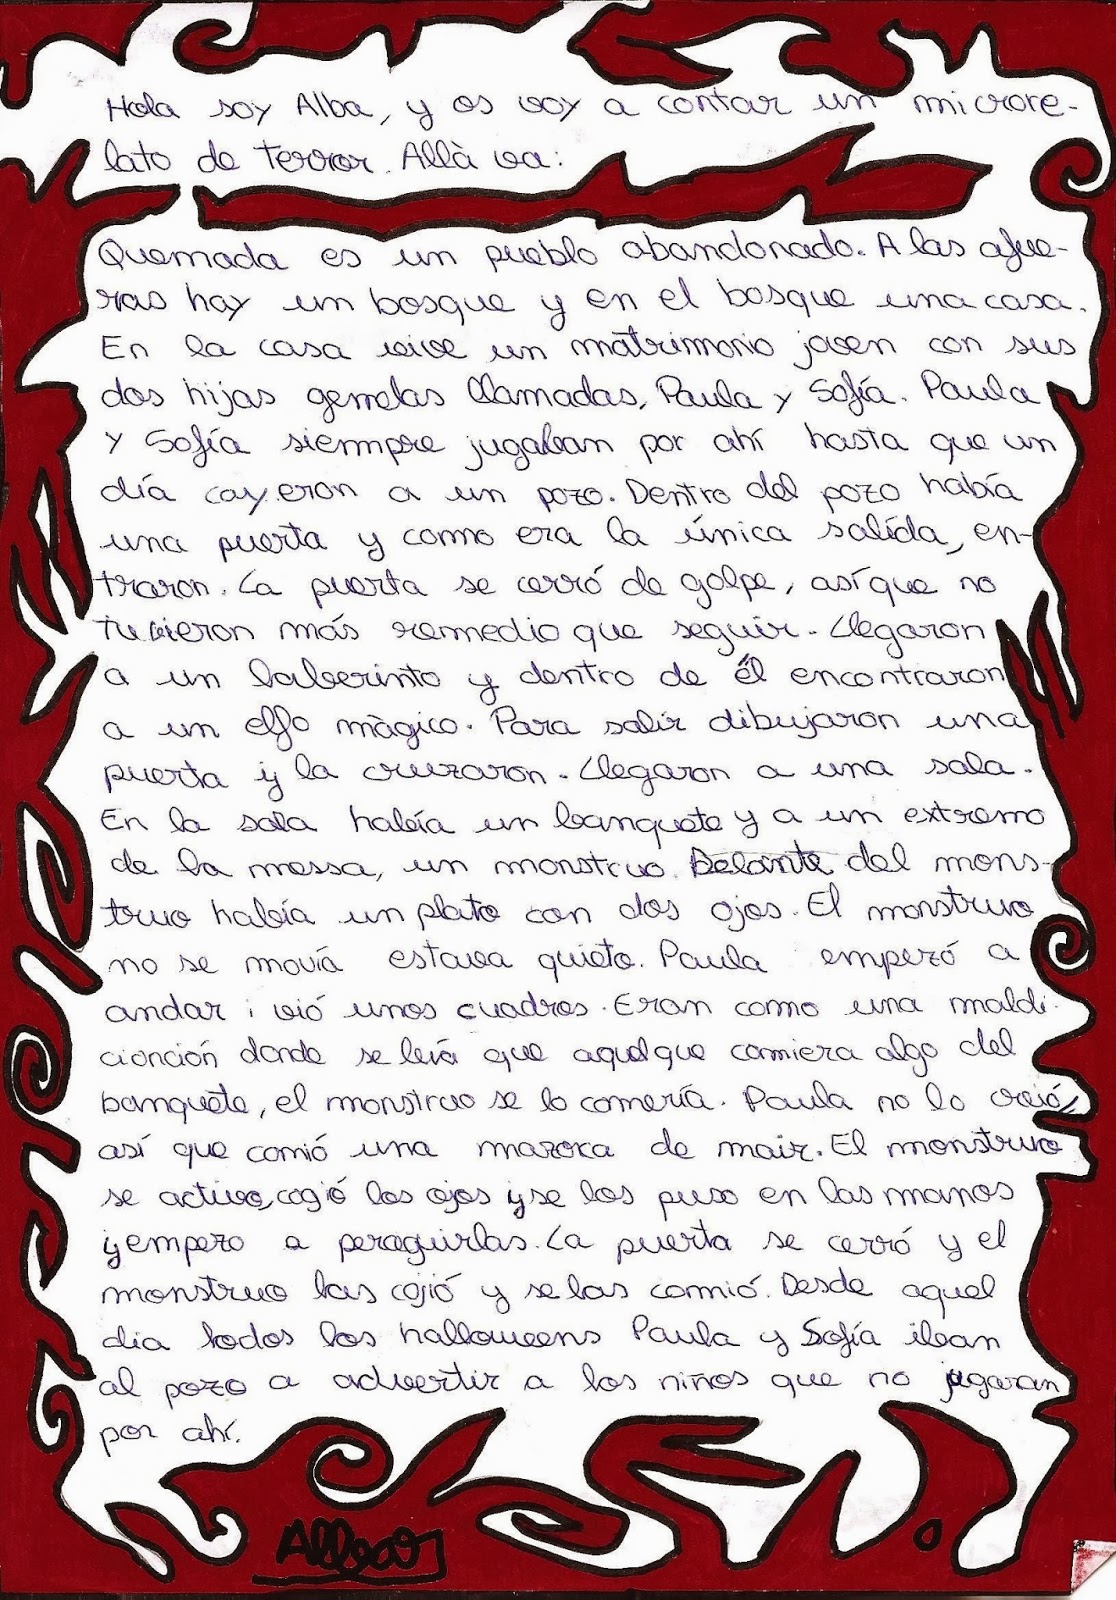 Hola soy Alba, y os voy a contar un microre-
lato de terror. Allà va:
Quemada es un pueblo abandonado. A las afue-
ras hay un bosque y en el bosque una casa.
En la casa vive un matrimonio joven con sus
dos hijas gemelas llamadas, Paula y Sofía. Paula
y Sofía siempre jugaban por ahí hasta que un
día cayeron a un pozo. Dentro del pozo había
una puerta y como era la única salida, en-
traron. La puerta se cerró de golpe, así que no
tuvieron más remedio que seguir. Llegaron
a un laberinto y dentro de él encontraron
a un elfo màgico. Para salir dibujaron una
puerta y la cruzaron. Llegaron a una sala.
En la sala había un banquete y a un extremo
de la messa, un monstruo. Delante del mons-
truo había un plato con dos ojos. El monstruo
no se movía estava quieto. Paula empezó a
andar i vió unos cuadros. Eran como una maldi-
cionción donde se leía que aquel que comiera algo del
banquete, el monstruo se lo comería. Paula no lo creió,
así que comió una mazorca de maiz. El monstruo
se activo, cogió los ojos y se los puso en las manos
y empezo a peraguirlas. La puerta se cerró y el
monstruo las cojió y se las comió. Desde aquel
dia todos los halloweens Paula y Sofía iban
al pozo a advertir a los niños que no jugaran
por ahí.